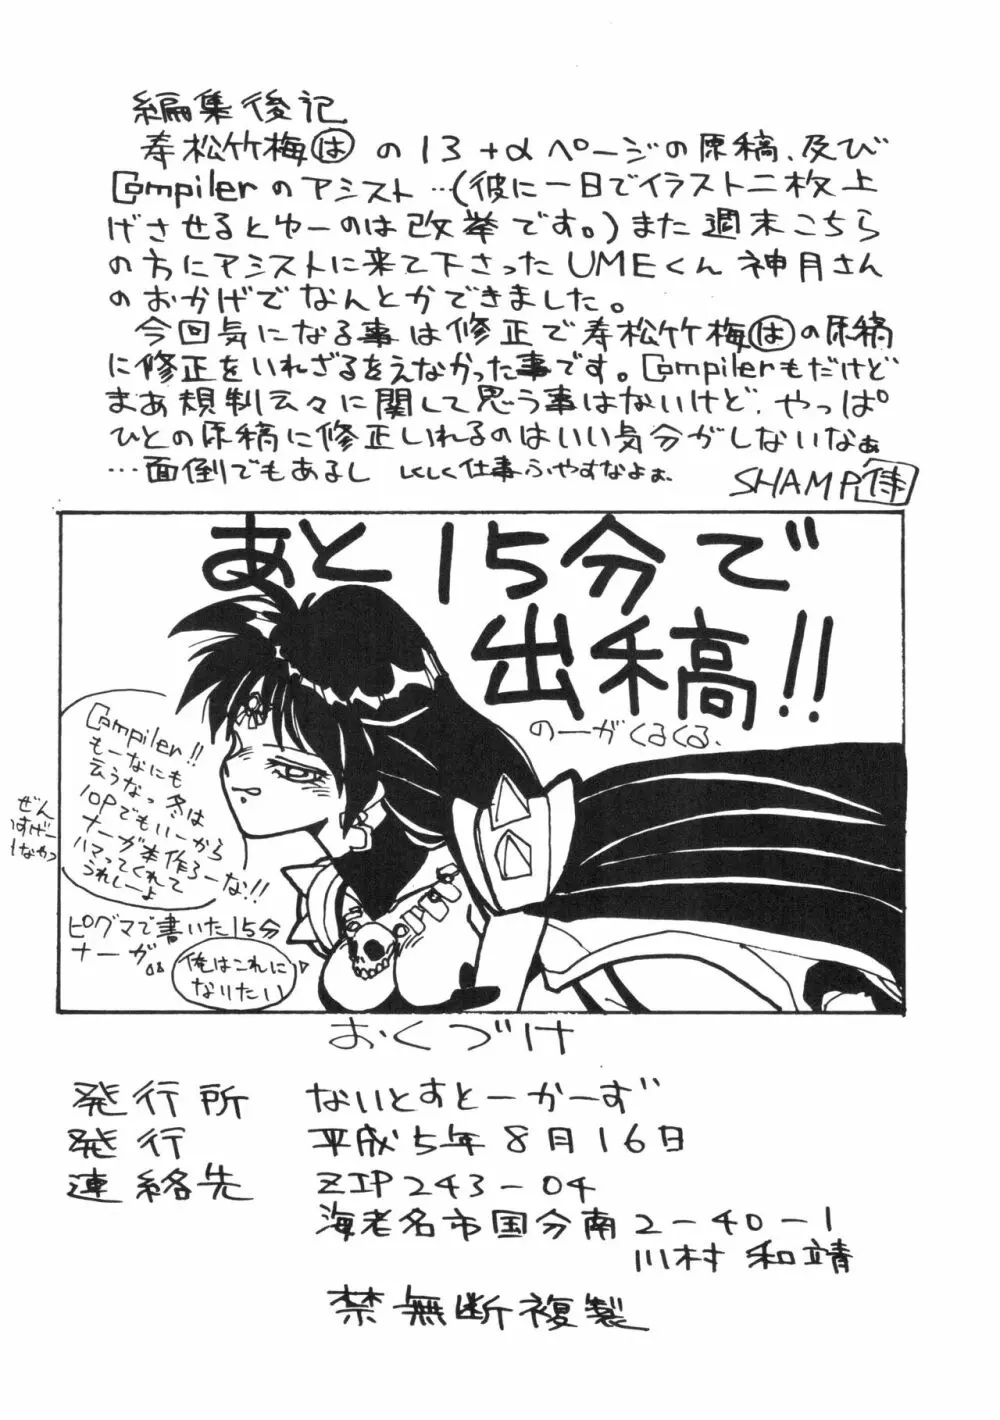 編集後記
寿松竹梅はの13+αページの原稿、及び
Compilerのアシスト…(彼に一日でイラスト二枚上
げさせるとゆーのは改挙です。)また週末こちら
の方にアシストに来て下さったUMEくん 神月さん
のおかげでなんとかできました。
今回気になる事は修正で寿松竹梅はの原稿
に修正をいれざるをえなかった事です。Compilerもだけど
まあ規制云々に関して思う事はないけど、やっぱ
ひとの原稿に修正いれるのはいい気分がしないなぁ
…面倒でもあるし しくしく仕事ふやすなよぉ。
SHAMP侍
あと15分で
出稿!!
のーがくるくる、
Compiler!!
もーなにも
云うなっ 冬は
10Pでもいーから
ナーガ本作ろーな!!
ハマってくれて
うれしーよ
ぜん
ピグマで書いた15分
ナーガ
俺はこれに
なりたい
おくづけ
発行所 ないとすとーかーず
発行 平成5年8月16日
連絡先 ZIP243-04
海老名市国分南2-40-1
川村 和靖
禁無断複製